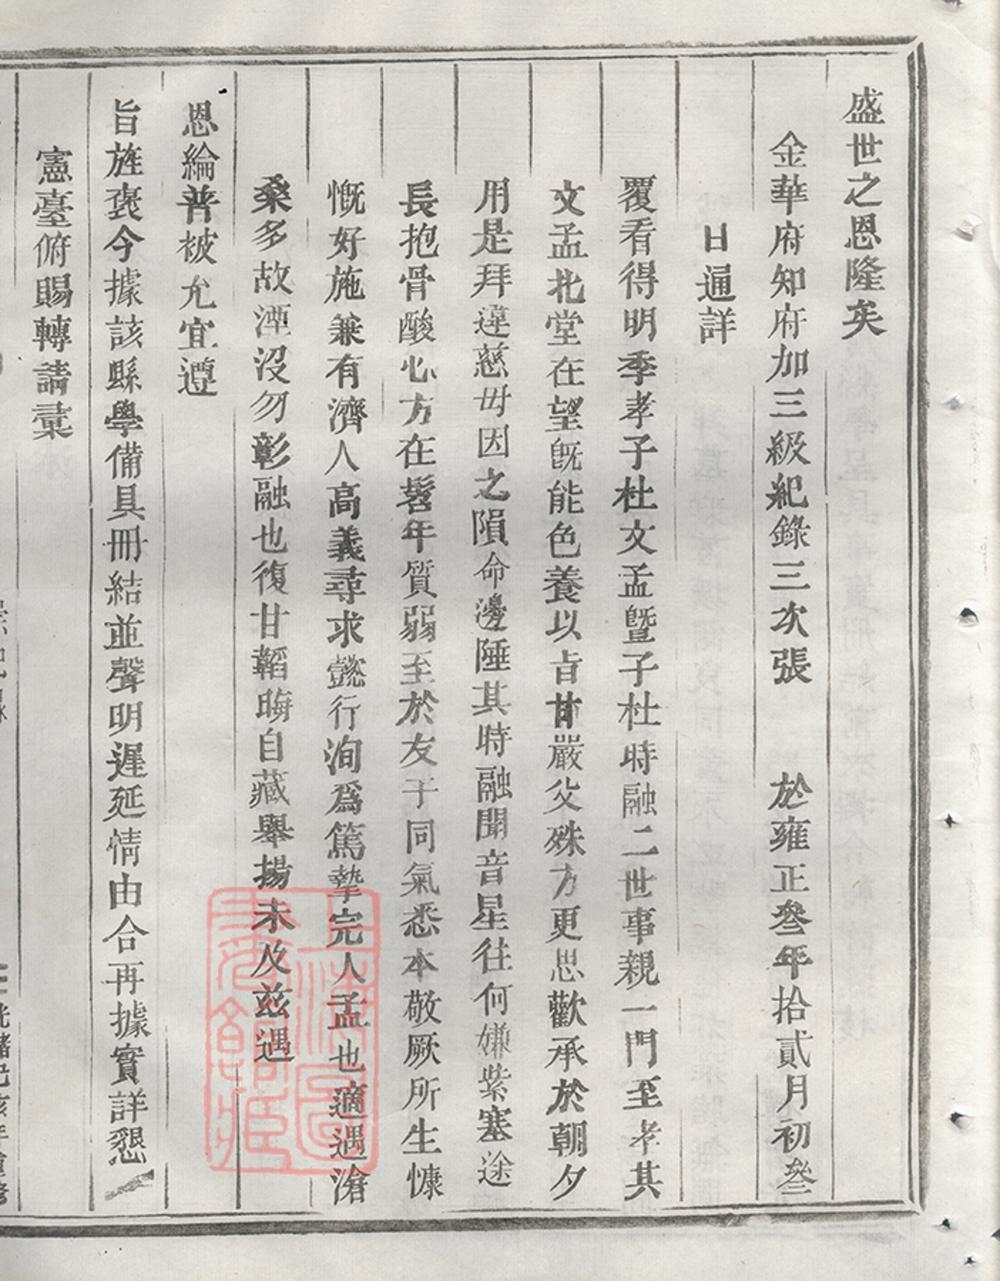 盛世之恩隆矣
金華府知府加三級紀錄三次張　於雍正叄年拾貳月初叄
日通詳
覆看得明季孝子杜文孟暨子杜時融二世事親一門至孝其
文孟北堂在望旣能色養以旨甘嚴父殊方更思歡承於朝夕
用是拜違慈毋因之隕命邊陲其時融聞音星往何嫌紫塞途
長抱骨酸心方在髫年質弱至於友于同氣悉本敬厥所生慷
慨好施兼有濟人高義尋求懿行洵爲篤摯完人孟也適遇滄
桑多故湮沒勿彰融也復甘韜晦自藏舉揚未及茲遇
恩綸普被允宜遵
旨旌褒今據該縣學備具冊結並聲明遲延情由合再據實詳懇
憲臺俯賜轉請彙
光緒己亥年重修